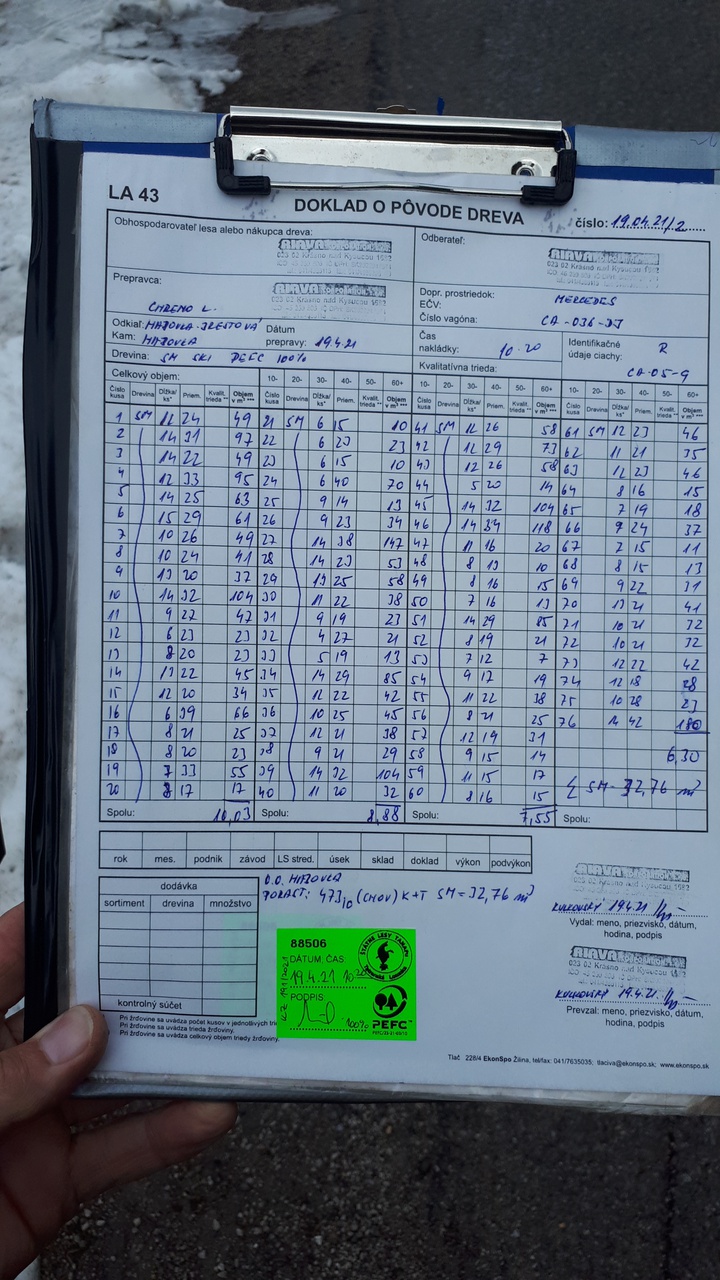 LA 43
DOKLAD O PÔVODE DREVA
číslo: 19.04.21/2
Obhospodarovateľ lesa alebo nákupca dreva:
Odberateľ:
023 02 Krásno nad Kysucou 1592
023 02 Krásno nad Kysucou 1592
Prepravca:
023 02 Krásno nad Kysucou 1592
Dopr. prostriedok: MERCEDES
EČV:
Číslo vagóna: CA-036-DJ
Odkiaľ:
Kam:
Dátum prepravy: 19.4.21
Čas nakládky: 10.20
Identifikačné údaje ciachy: R
CA-05-9
Drevina: SM SKI PEFC 100%
Kvalitatívna trieda:
Celkový objem: 10- 20- 30- 40- 50- 60+ 10- 20- 30- 40- 50- 60+ 10- 20- 30- 40- 50- 60+
Číslo kusa Drevina Dĺžka/ks* Priem. Kvalit. trieda ** Objem v m³ ***
1 SM 12 24 49 21 SM 6 15 10 41 SM 12 26 58 61 SM 12 23 46
2 14 31 97 22 6 23 23 42 12 29 73 62 11 21 35
3 14 22 49 23 6 15 10 43 12 26 58 63 12 23 46
4 12 33 95 24 6 40 70 44 5 20 14 64 8 16 15
5 14 25 63 25 9 14 13 45 14 32 104 65 7 19 18
6 15 29 61 26 9 23 34 46 14 34 118 66 9 24 37
7 10 26 49 27 14 38 147 47 11 16 20 67 7 15 11
8 10 24 41 28 14 23 53 48 8 13 10 68 8 15 13
9 13 20 37 29 13 25 58 49 8 16 15 69 9 22 31
10 14 32 104 30 11 22 38 50 7 16 13 70 13 21 41
11 9 27 47 31 9 19 23 51 14 29 85 71 10 21 32
12 6 23 23 32 4 27 21 52 8 19 21 72 10 21 32
13 8 20 23 33 5 19 13 53 7 12 7 73 12 22 42
14 13 22 45 34 14 29 85 54 9 17 19 74 12 18 28
15 12 20 34 35 12 22 42 55 11 22 38 75 10 28 23
16 6 39 66 36 10 25 45 56 8 21 25 76 14 42 180
17 8 21 25 37 12 21 38 57 12 19 31
18 8 20 23 38 9 21 29 58 9 15 14 6,30
19 7 33 55 39 14 32 104 59 11 15 17
20 8 17 17 40 11 20 32 60 8 16 15 SM- 32,76 m³
Spolu: 10,03 Spolu: 8,88 Spolu: 7,55 Spolu:
rok mes. podnik závod LS stred. úsek sklad doklad výkon podvýkon
dodávka
sortiment drevina množstvo
kontrolný súčet
PORAST: 473 (CHOV) K+T SM=32,76 m³
88506
DÁTUM, ČAS
19.4.21
PODPIS
100%
ŠTÁTNE LESY TANAPU
PEFC
19.4.21
Vydal: meno, priezvisko, dátum, hodina, podpis
023 02 Krásno nad Kysucou 1592
19.4.21.
Prevzal: meno, priezvisko, dátum, hodina, podpis
Pri žrďovine sa uvádza počet kusov v jednotlivých
Pri žrďovine sa uvádza trieda žrďoviny.
Pri žrďovine sa uvádza celkový objem triedy žrďoviny.
Tlač 228/4 EkonSpo Žilina, tel/fax: 041/7635035; tlaciva@ekonspo.sk; www.ekonspo.sk